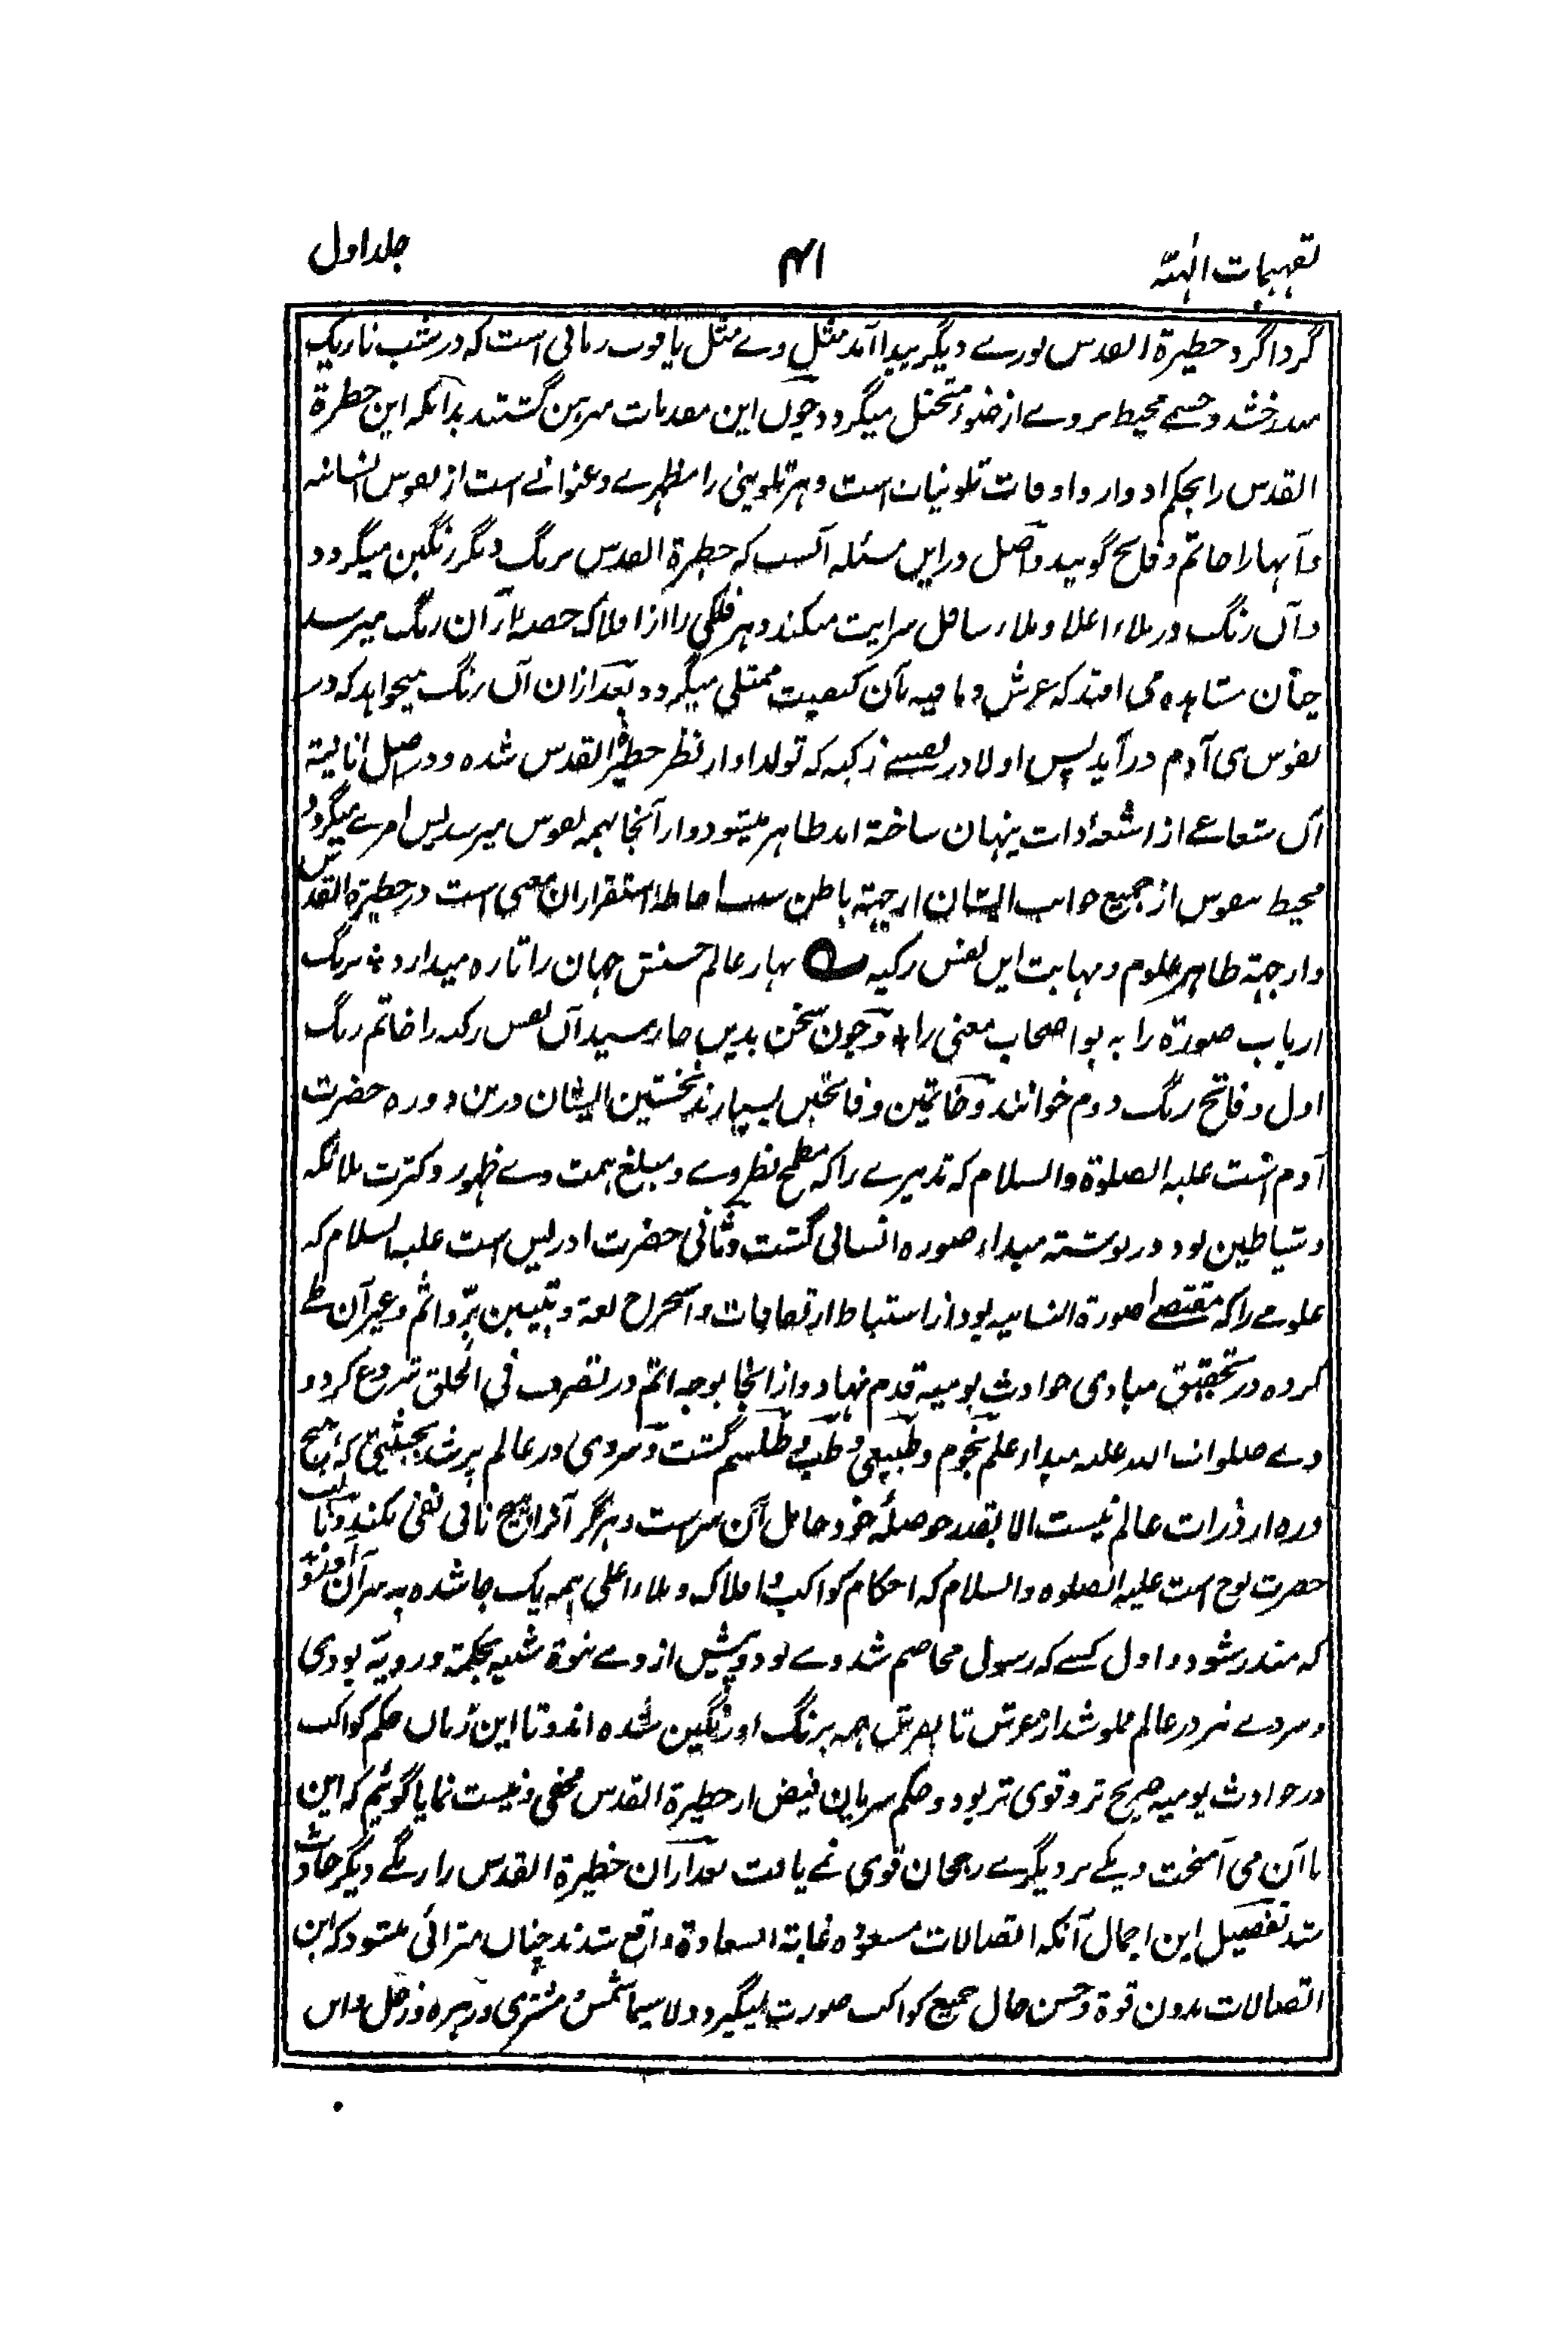 تفہیمات الٰہیّہ
۴۱
جلد اول
گرداگرد حظیرة القدس نورے دیگر پیدا آمد مثل وے مثل یاقوت رمانی است که در شب تاریک
میدرخشد و جسمے محیط بروے از ضوء متخیل میگردد چوں این مقدمات مبرہن گشتند بدانکه این حظرة
القدس را بحکم ادوار و اوقات تلونیات است و ہر تلوینی را مظہرے و عنوانے است از نفوس انسانیه
و آنہا را خاتم و فاتح گویند و اصل در ایں مسئله آنست که حظیرة القدس برنگ دیگر رنگین میگردد
و آں رنگ در ملاء اعلا و ملاء سافل سرایت میکند و ہر فلکی را از املاک حصۂ از آن رنگ میرسد
چنان مشاہده می افتد که عرش و ما فیه بآن کیفیت ممتلی میگردد و بعد ازان آں رنگ میخواہد که در
نفوس بنی آدم در آید پس اولا در نفسے زکیه که تولد او از نظر حظیرة القدس شده و در اصل انانیة
آں شعاعے از اشعۂ ذات پنہان ساخته اند ظاہر میشود و از آنجا بہمه نفوس میرسد پس امرے میگردد
محیط بنفوس از جمیع جوانب ایشان از جہة باطن احاطه استقرار ان معنی است در حظیرة القدس
و از جہة ظاہر علوم و مہابت ایں نفس زکیه بہار عالم حسنش جہان را تازه میدارد ؞ برنگ
ارباب صورة را به بو اصحاب معنی را ؞ و چون سخن بدیں جا رسید آں نفس زکیه را خاتم رنگ
اول و فاتح رنگ دوم خوانند و خاتمین و فاتحین بسیارند نخستین ایشان درین دوره حضرت
آدم است علیه الصلوة والسلام که تدبیرے را که مطمح نظر وے و مبلغ ہمت وے ظہور و کثرت ملائکه
و شیاطین بود در نوشته مبداء صوره انسانی گشت و ثانی حضرت ادریس است علیه السلام که
علومے را که مقتضے صورة انسانیه بود از استنباط ارتفاقات و استخراج لغة و تبیین برّ و اثم و غیر آن طے
کرده در تحقیق مبادی حوادث یومیه قدم نہاد و از انجا بوجه اتم در تصرف فی الخلق شروع کرد و
وے صلوات الله علیه مبداء علم نجوم و طبیعی و طب و طلسم گشت و سردی در عالم پر شد بحیثیتے که ہیچ
ذره از ذرات عالم نیست الا بقدر حوصلۂ خود حامل آن سرست و ہرگز آنرا ہیچ نافی نفی نکند و ثالث
حضرت نوح است علیه الصلوه والسلام که احکام کواکب و املاک و ملاء اعلی ہمه یک جا شده به سر آن آوند
که منذر شود و اول کسے که رسول مخاصم شد وے بود و پیش از وے نبوة شبیه بحکمة و رویّة بودی
و سر وے نیز در عالم مملو شد از عرش تا بفرش ہمه برنگ او رنگین شده اند و تا این زماں حکم کواکب
در حوادث یومیه صریح تر و قوی تر بود و حکم سریان فیض از حظیرة القدس مخفی و نیست نما یا گوئیم که این
با آن می آمیخت و یکے بر دیگرے رجحان قوی نمے یافت بعد از آن حظیرة القدس را رنگے دیگر حادث
شد تفصیل این اجمال آنکه اتصالات مسعوده غایة السعادة واقع شدند چناں مترائی میشود که این
اتصالات بدون قوة و حسن حال جمیع کواکب صورت نمیگیرد و لا سیما شمس و مشتری و زہره و زحل و اس